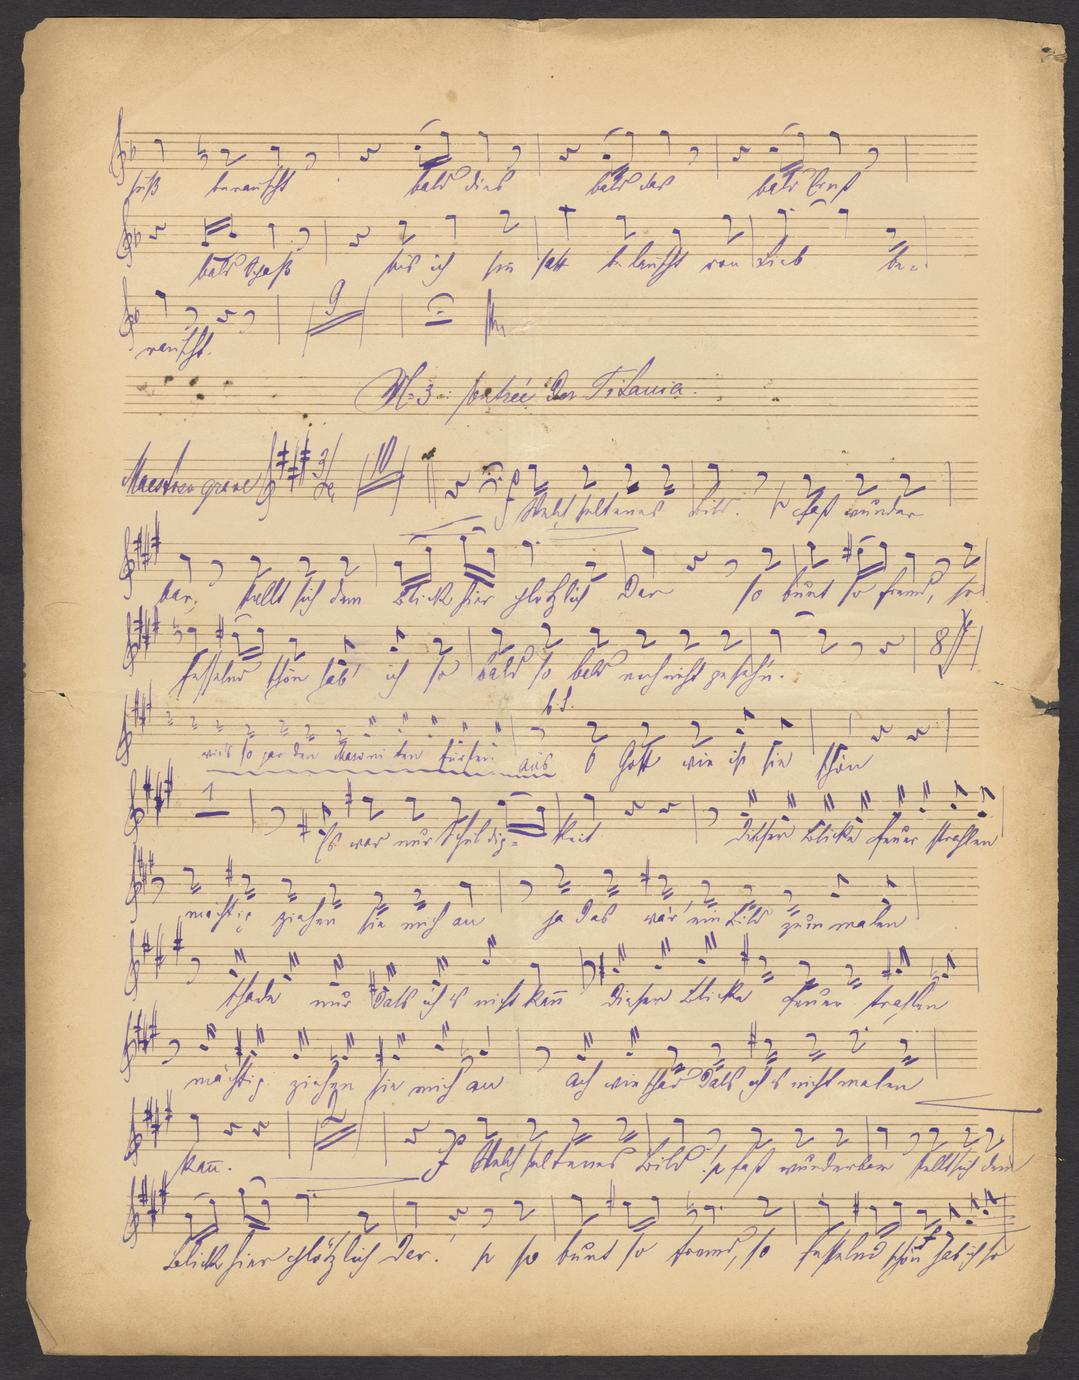 süß berauscht bald dies bald das bald Ernst
bald Spaß bis ich ihn satt belauscht von Lieb be-
rauscht.
9
N: 3: Entrée der Titania.
Maestoso grave 3/4 10
f Welch seltenes Bild. p fast wunder
bar, stellt sich dem Blick hier plötzlich Dar so bunt so fremd, so
fesselnd schön hab' ich so bald so bald noch nicht geseh'n. 8
so gar den aus O Gott wie ist sie schön
1 Es war nur Schuldig- keit dieser Blicke feuer strahlen
mächtig ziehen sie mich an ja das wär ein Bild zum malen
Schade nur Dass ich's nicht kañ dieser Blicke feuer strahlen
mächtig ziehen sie mich an ach wie schad Dass ich's nicht malen
kañ. 2 f Welch seltenes Bild. p fast wunderbar stellt sich dem
Blick hier plötzlich Dar. p so bunt so fremd, so fesselnd schön hab ich so